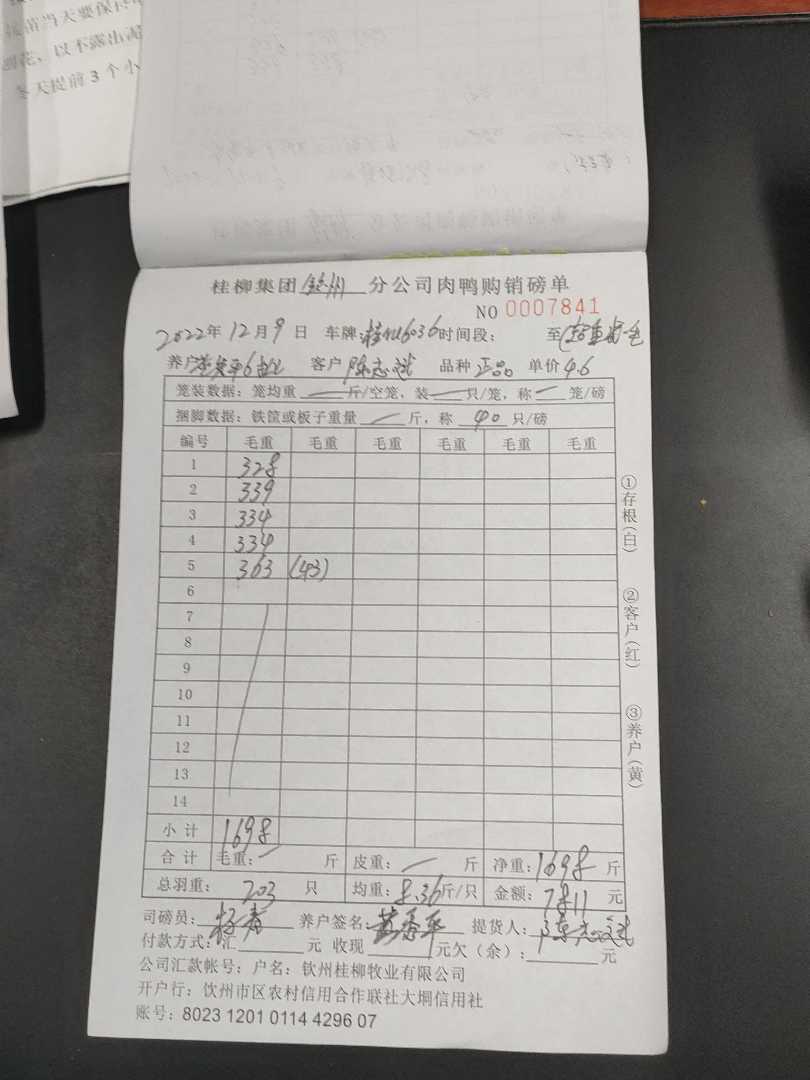 苗当天要保
花，以不露出泥
冬天提前3个小
桂柳集团 钦州 分公司肉鸭购销磅单
NO 0007841
2022年12月9日 车牌: 6036 时间段: 至
养户 客户 陈志斌 品种 正品 单价 4.6
笼装数据: 笼均重 斤/空笼, 装 只/笼, 称 笼/磅
捆脚数据: 铁筐或板子重量 斤, 称 40 只/磅
编号 毛重 毛重 毛重 毛重 毛重 毛重
1 328
2 339
3 334
4 334
5 363 (43)
6
7
8
9
10
11
12
13
14
小 计 1698
合 计 毛重: 斤 皮重: 斤 净重: 1698 斤
总羽重: 203 只 均重: 8.36 斤/只 金额: 7811 元
司磅员: 杨青 养户签名: 提货人: 陈志斌
付款方式: 汇 元 收现 元欠（余）: 元
公司汇款帐号: 户名: 钦州桂柳牧业有限公司
开户行: 钦州市区农村信用合作联社大垌信用社
账号: 8023 1201 0114 4296 07
①存根(白)
②客户(红)
③养户(黄)